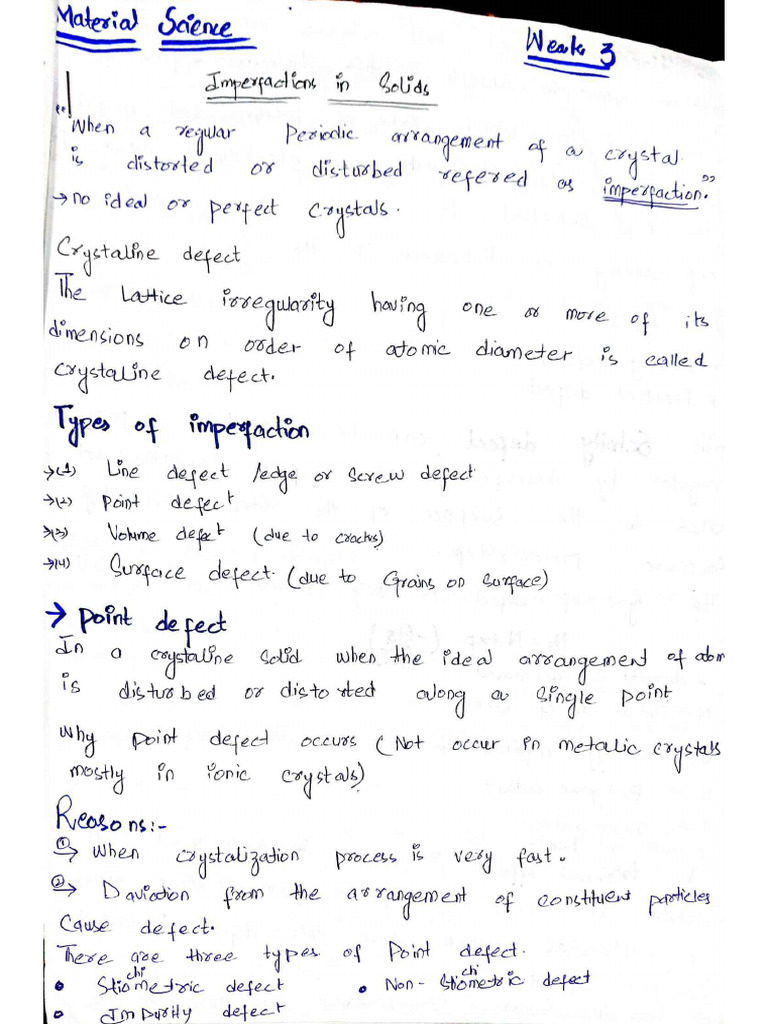 Material Science
Week 3
Imperfactions in Solids
"When a regular Periodic arrangement of a crystal
is distorted or disturbed refered as imperfaction."
→ no ideal or perfect Crystals.
Crystaline defect
The Lattice irregularity having one or more of its
dimensions on order of atomic diameter is called
crystaline defect.
Types of imperfaction
→(1) Line defect /edge or screw defect
→(2) Point defect
→(3) Volume defect (due to cracks)
→(4) Surface defect. (due to Grains on surface)
→ Point defect
In a crystaline solid when the ideal arrangement of atom
is disturbed or distorted along a single point
Why Point defect occurs (Not occur in metalic crystals
mostly in ionic crystals)
Reasons:-
① → When crystalization process is very fast.
② → Daviation from the arrangement of constituent particles
Cause defect.
There are three types of Point defect.
• Stiochimetric defect • Non-Stiochimetric defect
• Impurity defect